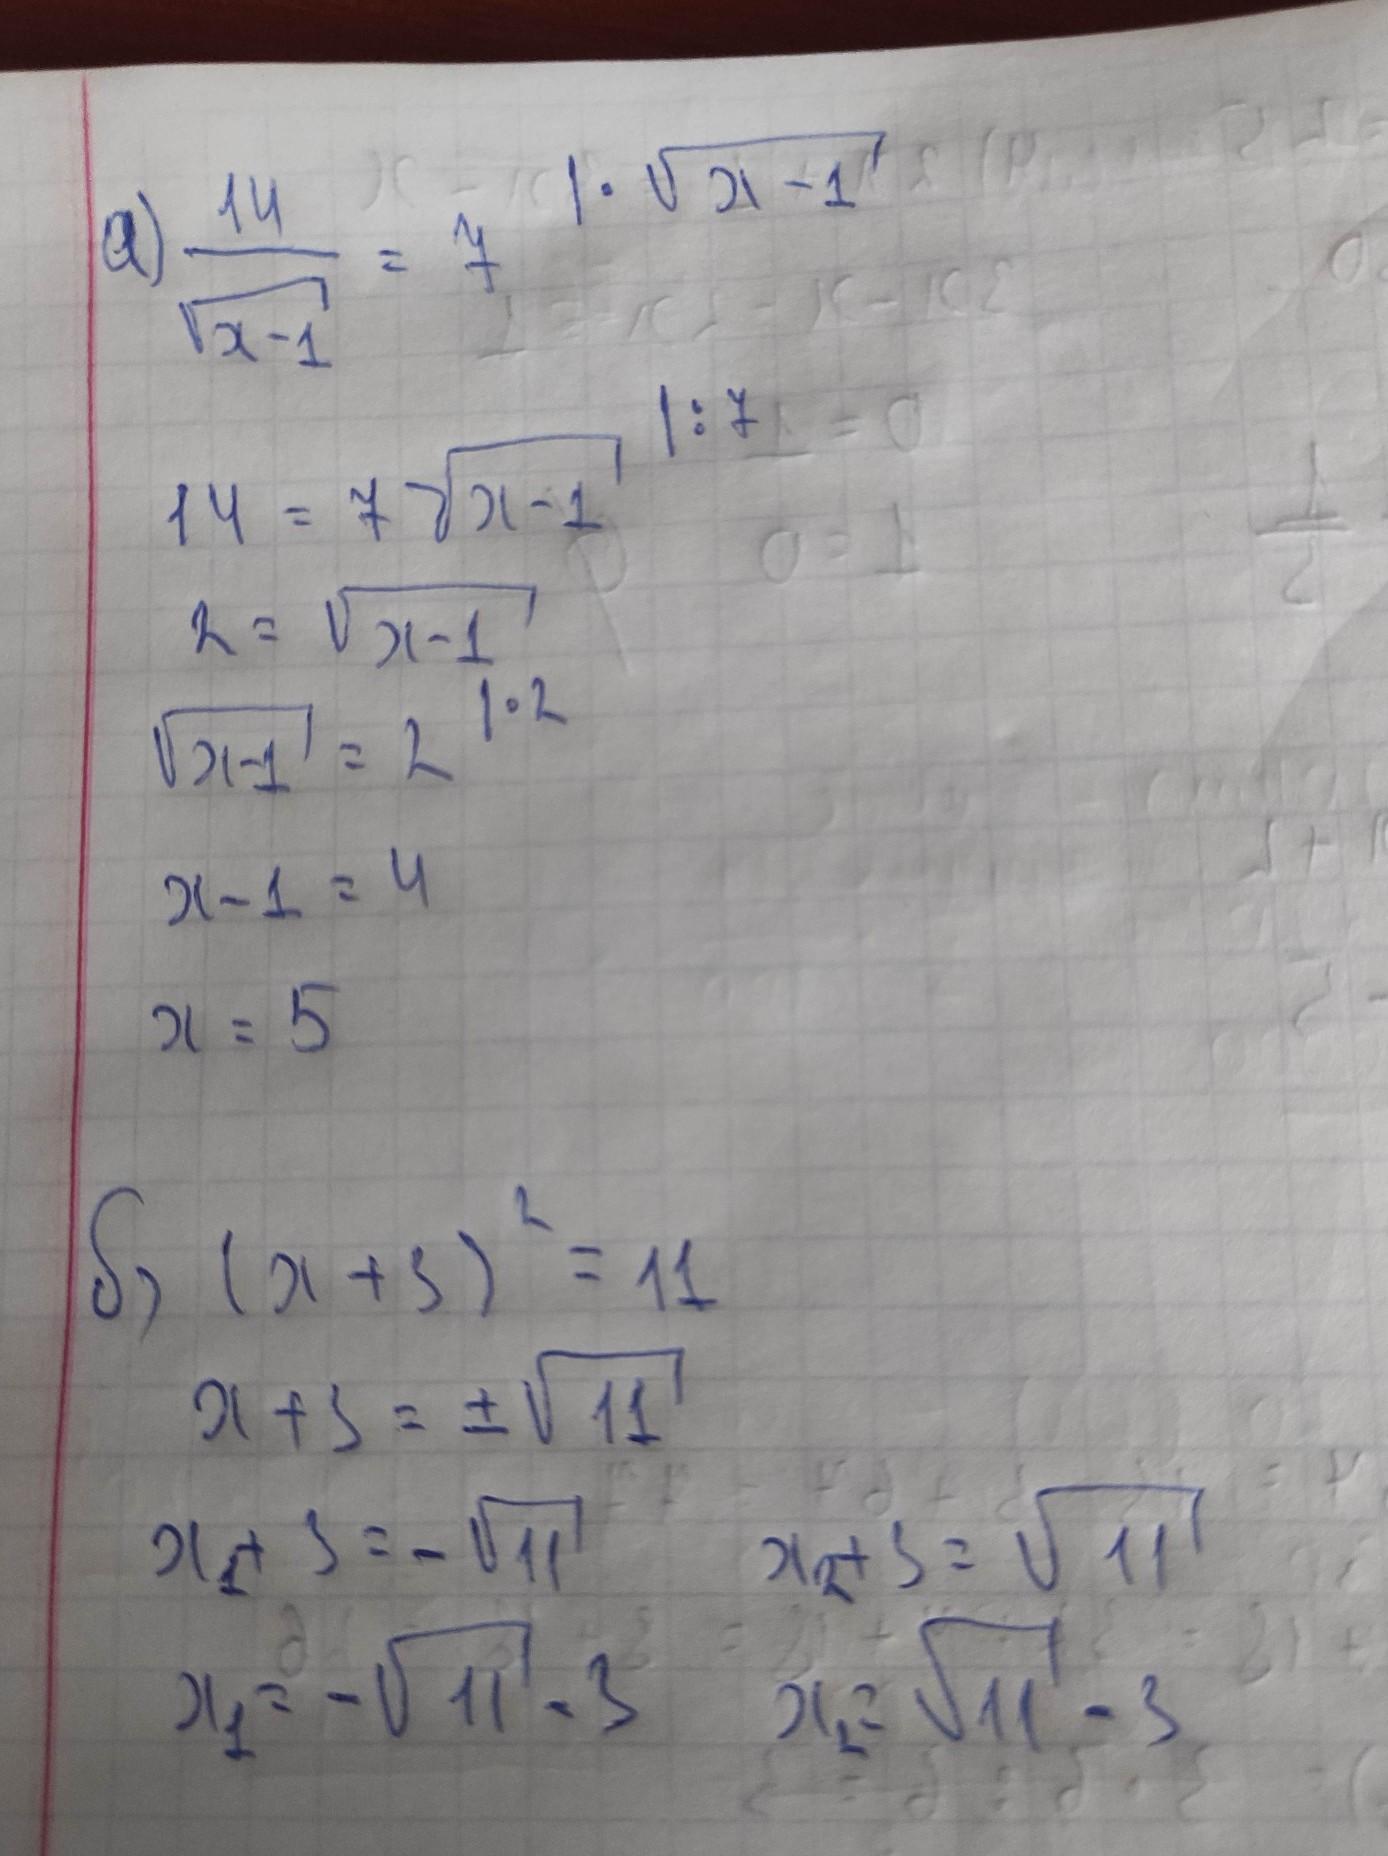 а) 14/√(x-1) = 7 |· √(x-1)
14 = 7√(x-1) |:7
2 = √(x-1)
√(x-1) = 2 |·2
x-1 = 4
x = 5
б) (x+3)² = 11
x+3 = ±√11
x₁+3 = -√11 x₂+3 = √11
x₁ = -√11 - 3 x₂ = √11 - 3